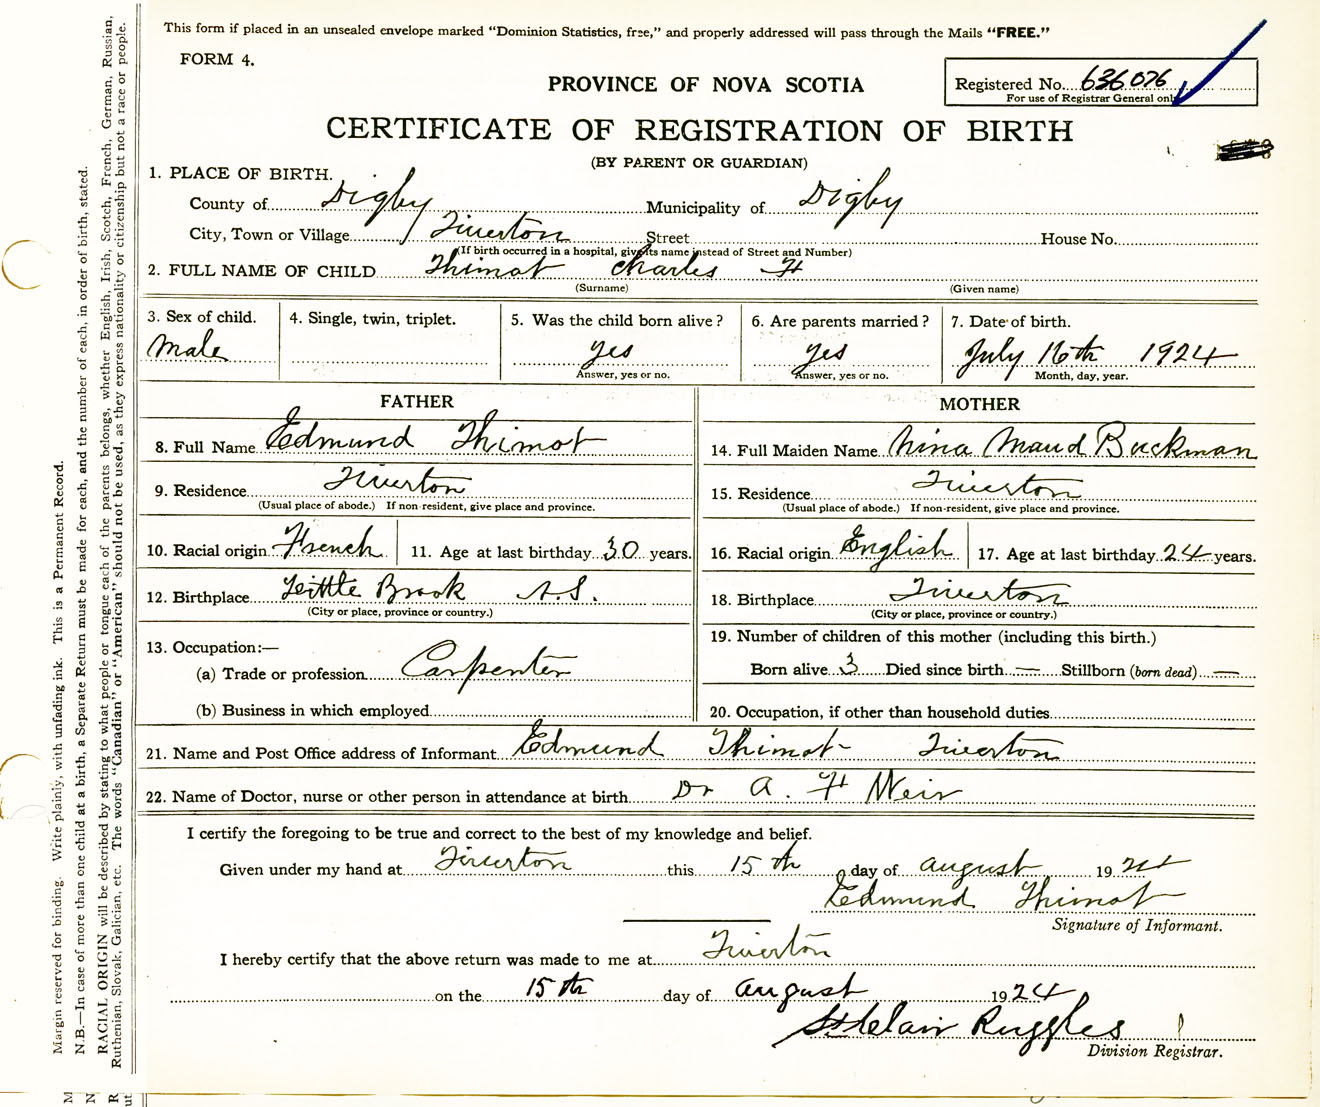 This form if placed in an unsealed envelope marked "Dominion Statistics, free," and properly addressed will pass through the Mails "FREE."
FORM 4.
PROVINCE OF NOVA SCOTIA
Registered No. 636076
For use of Registrar General only
CERTIFICATE OF REGISTRATION OF BIRTH
(BY PARENT OR GUARDIAN)
1. PLACE OF BIRTH.
County of Digby Municipality of Digby
City, Town or Village Tiverton Street House No.
(If birth occurred in a hospital, give its name instead of Street and Number)
2. FULL NAME OF CHILD Thimot Charles H
(Surname) (Given name)
3. Sex of child. 4. Single, twin, triplet. 5. Was the child born alive? 6. Are parents married? 7. Date of birth.
Male yes yes July 16th 1924
Answer, yes or no. Answer, yes or no. Month, day, year.
FATHER MOTHER
8. Full Name Edmund Thimot 14. Full Maiden Name Nina Maud Buckman
9. Residence Tiverton 15. Residence Tiverton
(Usual place of abode.) If non-resident, give place and province. (Usual place of abode.) If non-resident, give place and province.
10. Racial origin French 11. Age at last birthday 30 years. 16. Racial origin English 17. Age at last birthday 24 years.
12. Birthplace Little Brook N.S. 18. Birthplace Tiverton
(City or place, province or country.) (City or place, province or country.)
13. Occupation:— 19. Number of children of this mother (including this birth.)
(a) Trade or profession Carpenter Born alive 3 Died since birth — Stillborn (born dead) —
(b) Business in which employed 20. Occupation, if other than household duties
21. Name and Post Office address of Informant Edmund Thimot Tiverton
22. Name of Doctor, nurse or other person in attendance at birth Dr A. H Weir
I certify the foregoing to be true and correct to the best of my knowledge and belief.
Given under my hand at Tiverton this 15th day of august 1924
Edmund Thimot
Signature of Informant.
I hereby certify that the above return was made to me at Tiverton
on the 15th day of august 1924
St Clair Ruggles
Division Registrar.
Margin reserved for binding. Write plainly, with unfading ink. This is a Permanent Record.
N.B.—In case of more than one child at a birth, a Separate Return must be made for each, and the number of each, in order of birth, stated.
RACIAL ORIGIN will be described by stating to what people or tongue each of the parents belongs, whether English, Irish, Scotch, French, German, Russian,
Ruthenian, Slovak, Galician, etc. The words "Canadian" or "American" should not be used, as they express nationality or citizenship but not a race or people.
M
N
R
ut